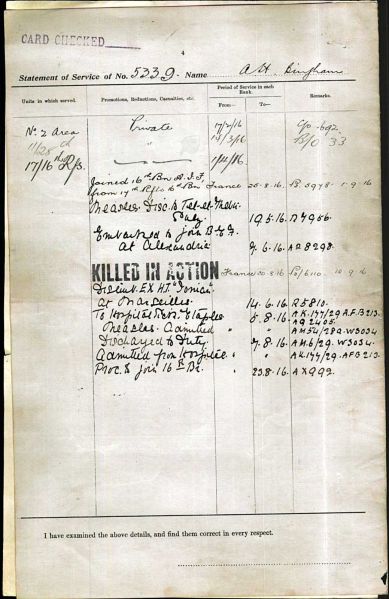 CARD CHECKED
4
Statement of Service of No. 5339. Name A H. Bingham
Units in which served.
Promotions, Reductions, Casualties, etc.
Period of Service in each Rank.
From—
To—
Remarks.
No 2 Area Private 17/2/16
"
17/16th R/s. 7/4/16
Joined 16th Bn A.I.F. France 20-8-16 B.5978 1-9-16
from 17th Rfts 16th Bn
Measles Disc. to Tel-el-
Duty 19.5.16
Embarked to join B.E.F.
at Alexandria 7.6.16 A28298.
KILLED IN ACTION France 10.9.16
Disemb. EX HT "Ionian"
at Marseilles 14.6.16. R5810.
To Hospital Etaples 5.8.16. AK.177/29 A.F.B213.
AQ 2405.
Measles. Admitted " " AM54/289. W3034.
Discharged to Duty " 7.8.16. AM.6/29. W3034.
Admitted from Hospital " " AK.177/29. AFB213.
Proc. to join 16th Bn. 23.8.16. AX992.
I have examined the above details, and find them correct in every respect.